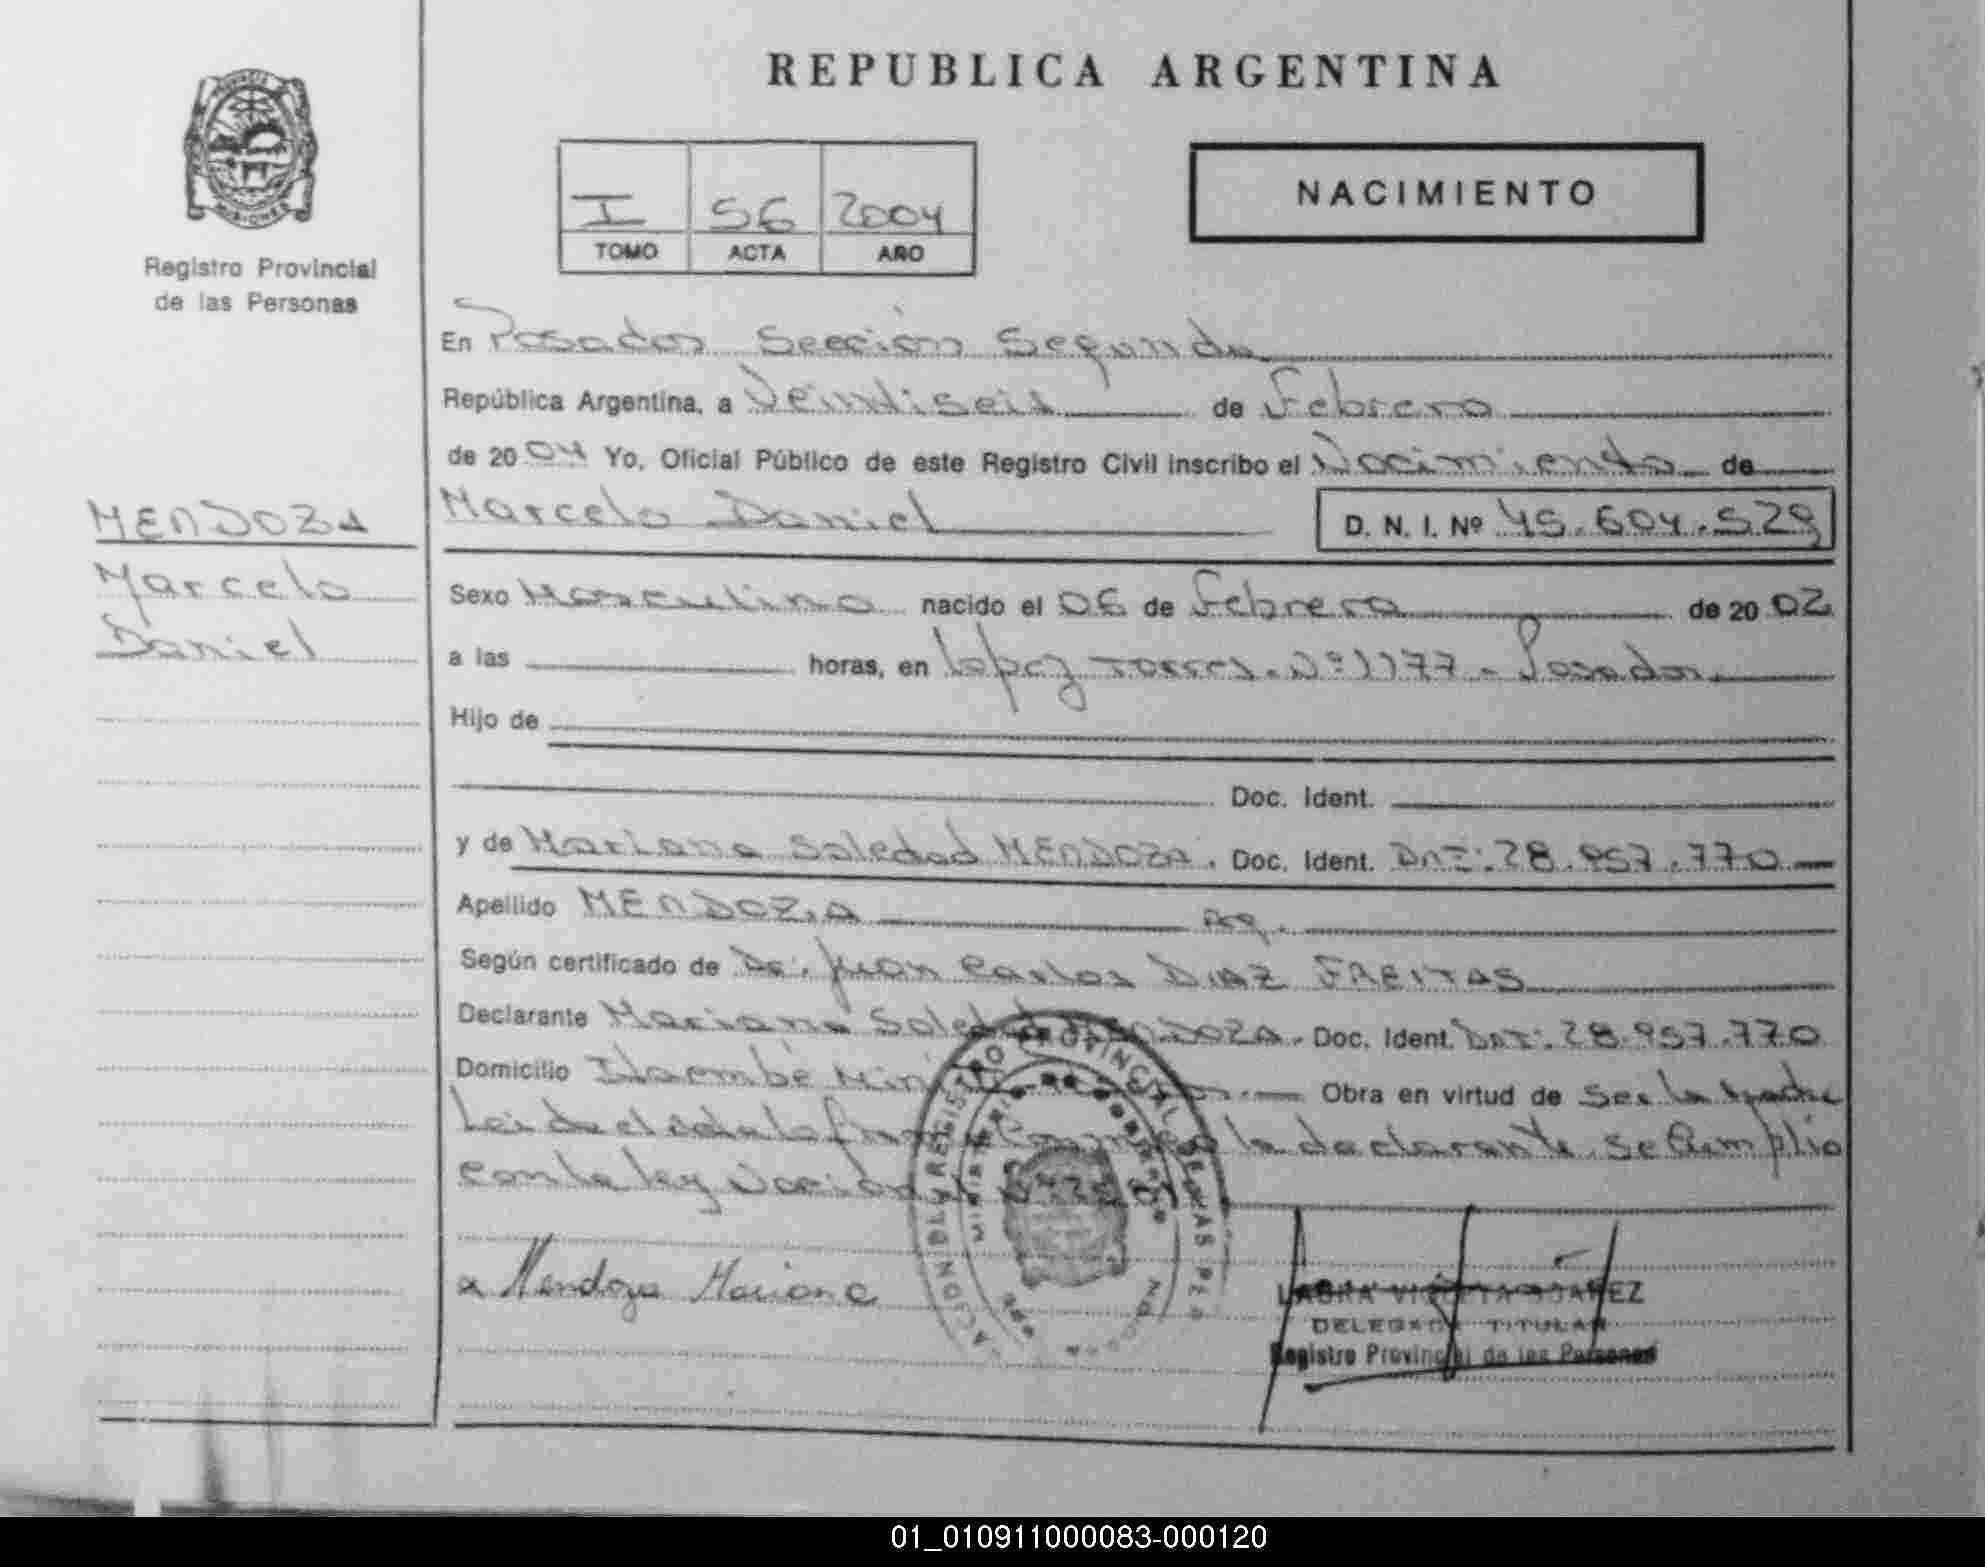 REPUBLICA ARGENTINA
PROVINCIA
MISIONES
Registro Provincial
de las Personas
I 56 2004
TOMO ACTA AÑO
NACIMIENTO
En Posadas Sección Segunda
República Argentina, a Veintiseis de Febrero
de 2004 Yo, Oficial Público de este Registro Civil inscribo el Nacimiento de
MENDOZA
Marcelo
Daniel
Marcelo Daniel D. N. I. Nº 45.604.529
Sexo Masculino nacido el 06 de Febrero de 2002
a las horas, en Lopez Torres. Nº 1177 - Posadas.
Hijo de
Doc. Ident.
y de Mariana Soledad MENDOZA. Doc. Ident. DNI: 28.957.770
Apellido MENDOZA Arg.
Según certificado de Dr. Juan Carlos DIAZ FREITAS
Declarante Mariana Soledad MENDOZA. Doc. Ident. DNI: 28.957.770
Domicilio Itaembé Mini Obra en virtud de Ser la Madre
Leida el acta la la declarante. Se Cumplio
con la ley Nacional
REGISTRO PROVINCIAL DE LAS
Mendoza Mariana
DELEGADA TITULAR
Registro Provincial de las Personas
01_010911000083-000120